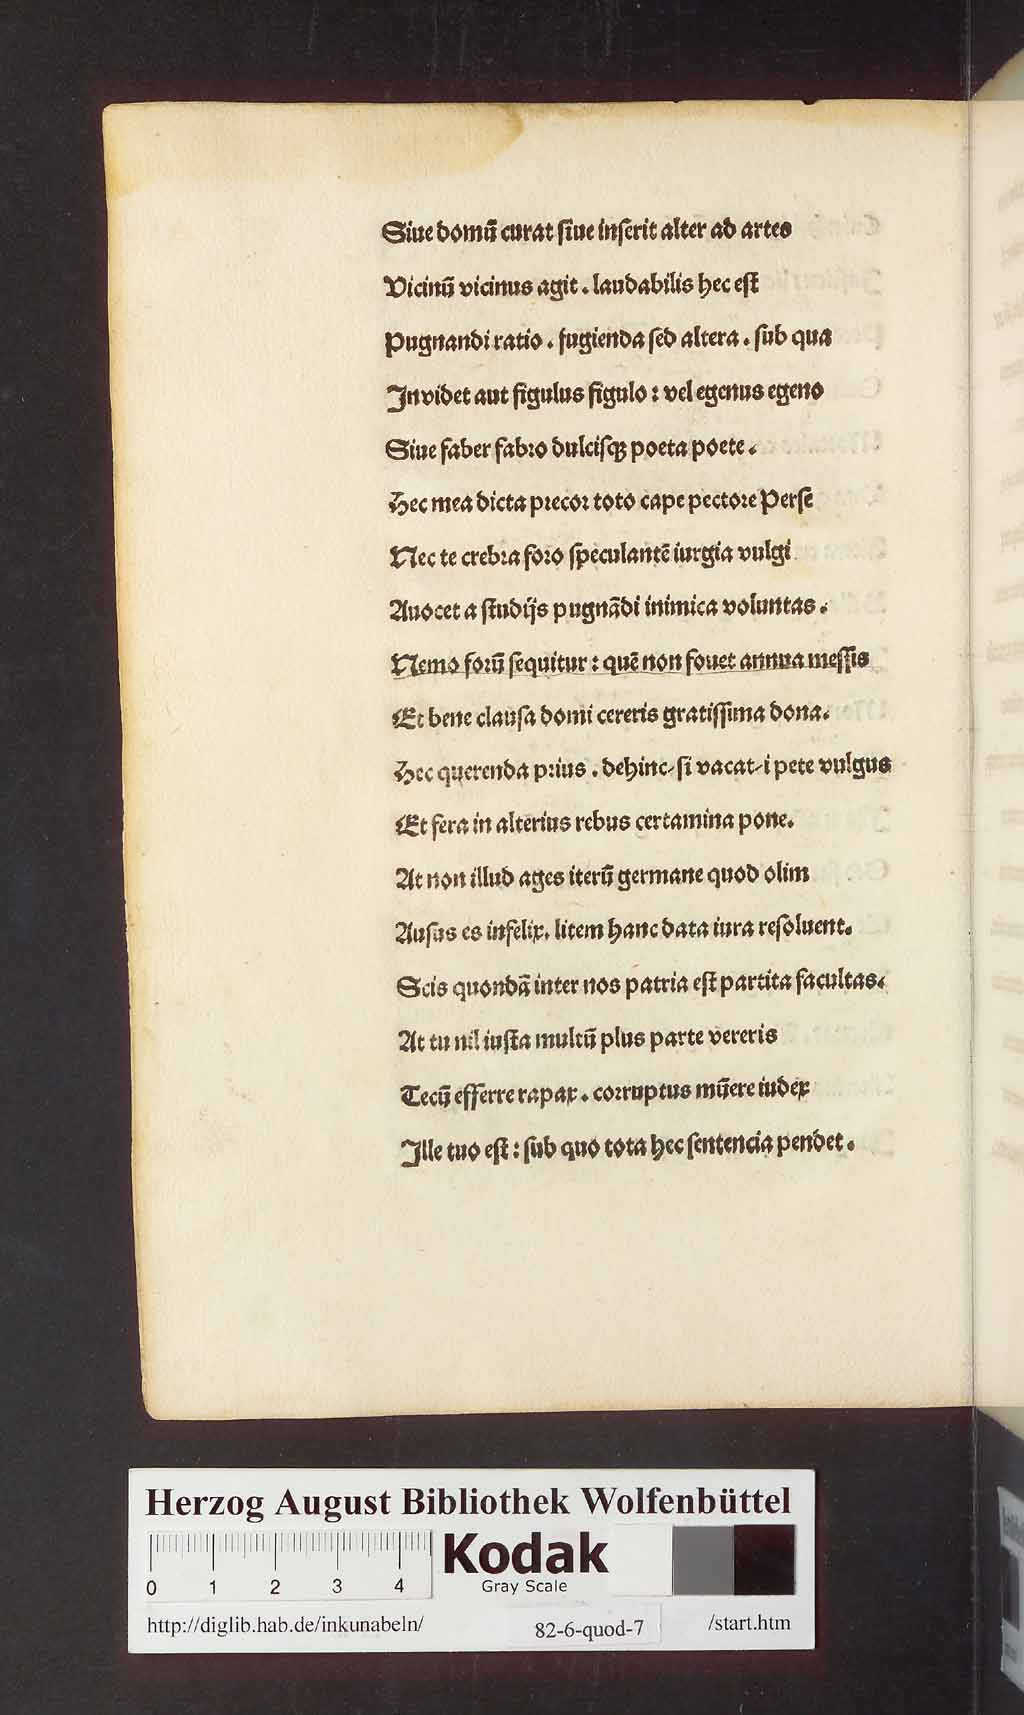 Siue domū curat ſiue inſerit alter ad artes
Vicinū vicinus agit . laudabilis hec eſt
Pugnandi ratio . fugienda ſed altera . ſub qua
Inuidet aut figulus figulo : vel egenus egeno
Siue faber fabꝛo dulciſqꝫ poeta poete .
Hec mea dicta pꝛecoꝛ toto cape pectoꝛe Perſe
Nec te crebꝛa foꝛo ſpeculantē iurgia vulgi
Auocet a ſtudijs pugnādi inimica voluntas .
Nemo foꝛū ſequitur : quē non fouet annua meſſis
Et bene clauſa domi cereris gratiſſima dona.
Hec querenda pꝛius . dehinc/ ſi vacat/ i pete vulgus
Et fera in alterius rebus certamina pone.
At non illud ages iterū germane quod olim
Auſus es infelix. litem hanc data iura reſoluent.
Scis quondā inter nos patria eſt partita facultas.
At tu nil iuſta multū plus parte vereris
Tecū efferre rapax . coꝛruptus mūere iudex
Ille tuo eſt : ſub quo tota hec ſentencia pendet .
Herzog August Bibliothek Wolfenbüttel
Kodak
0 1 2 3 4
Gray Scale
http://diglib.hab.de/inkunabeln/ 82-6-quod-7 /start.htm